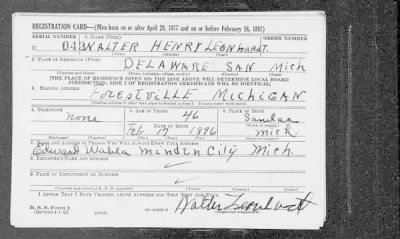 REGISTRATION CARD—(Men born on or after April 28, 1877 and on or before February 16, 1897)
SERIAL NUMBER 1. NAME (Print) ORDER NUMBER
U WALTER HENRY LEONHARDT.
2. PLACE OF RESIDENCE (Print)
DELAWARE SAN Mich
(Number and street) (Town, township, village, or city) (County) (State)
[THE PLACE OF RESIDENCE GIVEN ON THE LINE ABOVE WILL DETERMINE LOCAL BOARD
JURISDICTION; LINE 2 OF REGISTRATION CERTIFICATE WILL BE IDENTICAL]
3. MAILING ADDRESS
FORESTVILLE MICHIGAN
4. TELEPHONE 5. AGE IN YEARS 6. PLACE OF BIRTH
None 46 Sanilac
DATE OF BIRTH
Feb 17 1896 Mich
(Exchange) (Number) (Mo.) (Day) (Yr.) (State or country)
7. NAME AND ADDRESS OF PERSON WHO WILL ALWAYS KNOW YOUR ADDRESS
Edward Wahla Minden City Mich
8. EMPLOYER'S NAME AND ADDRESS
9. PLACE OF EMPLOYMENT OR BUSINESS
I AFFIRM THAT I HAVE VERIFIED ABOVE ANSWERS AND THAT THEY ARE TRUE.
D. S. S. Form 1
Walter Leonhardt